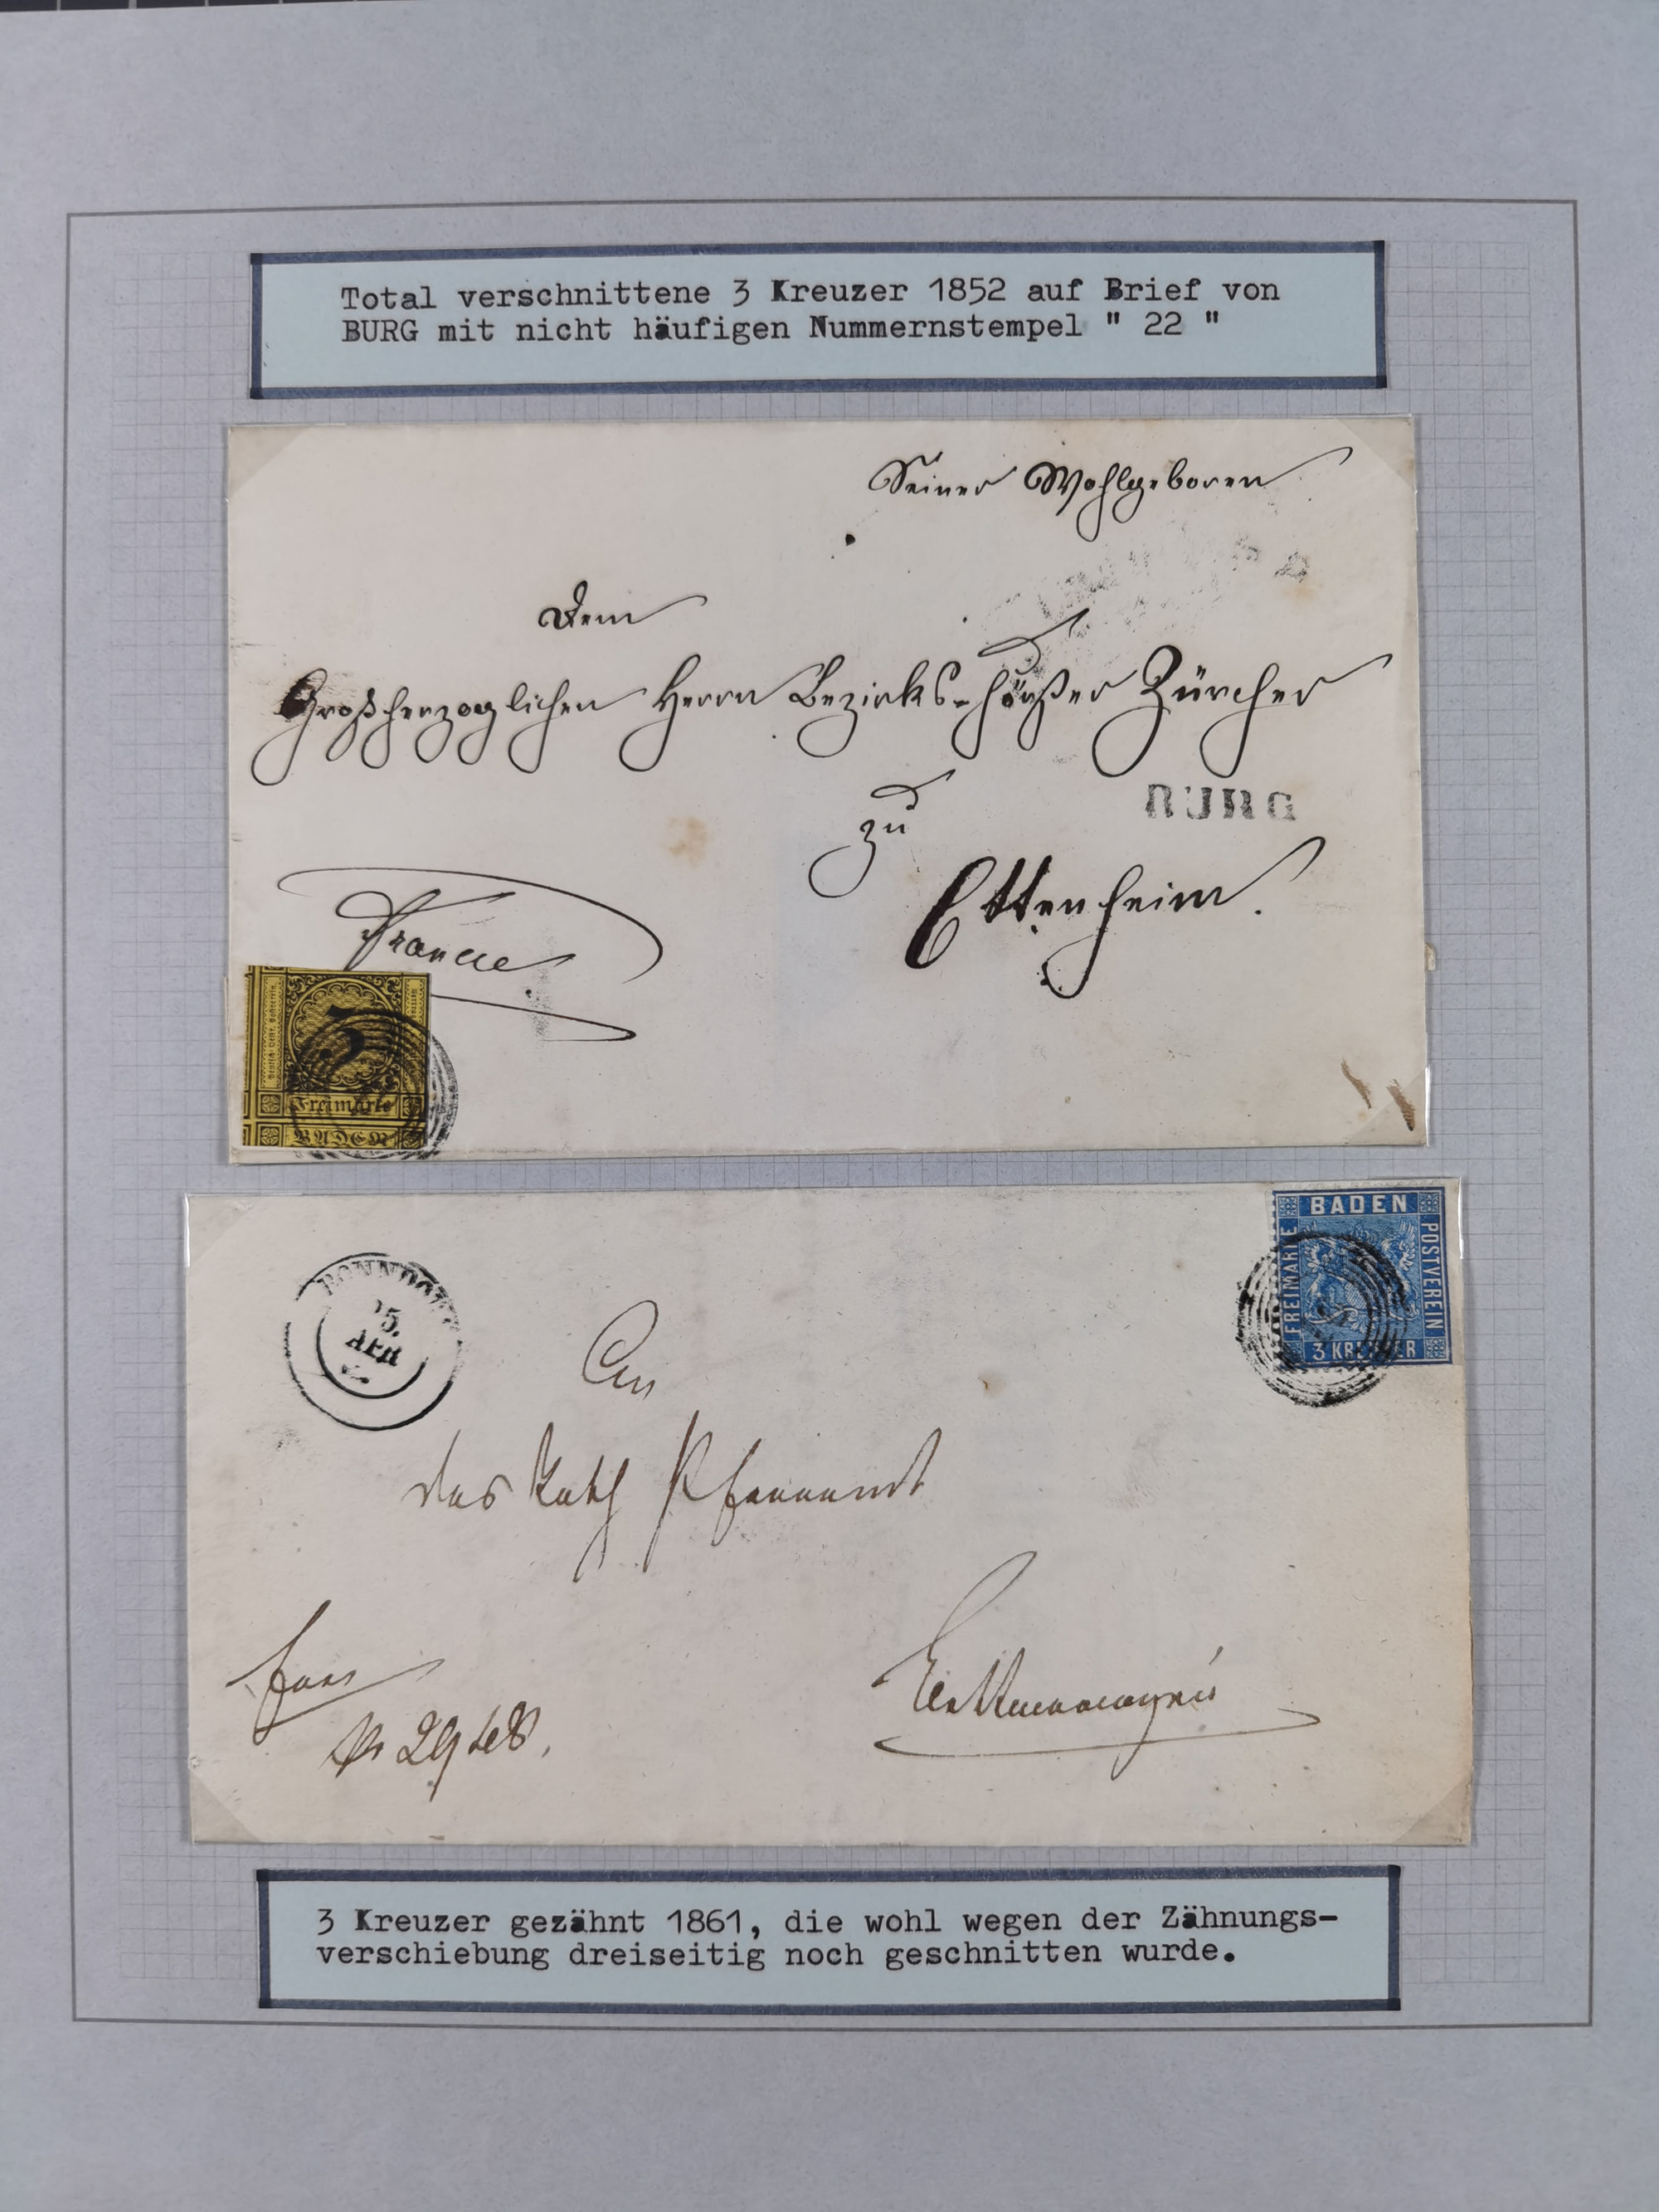 Total verschnittene 3 Kreuzer 1852 auf Brief von
BURG mit nicht häufigen Nummernstempel " 22 "
Seiner Wohlgeboren
Dem
Großherzoglichen Herrn Bezirks-Förster Zürcher
zu
BURG
Ettenheim.
Franco
3
Freimarke
BADEN
BADEN
FREIMARKE
POSTVEREIN
3 KREUZER
BONNDORF
15.
APR
An
das Kath Pfarramt
3 Kreuzer gezähnt 1861, die wohl wegen der Zähnungs-
verschiebung dreiseitig noch geschnitten wurde.